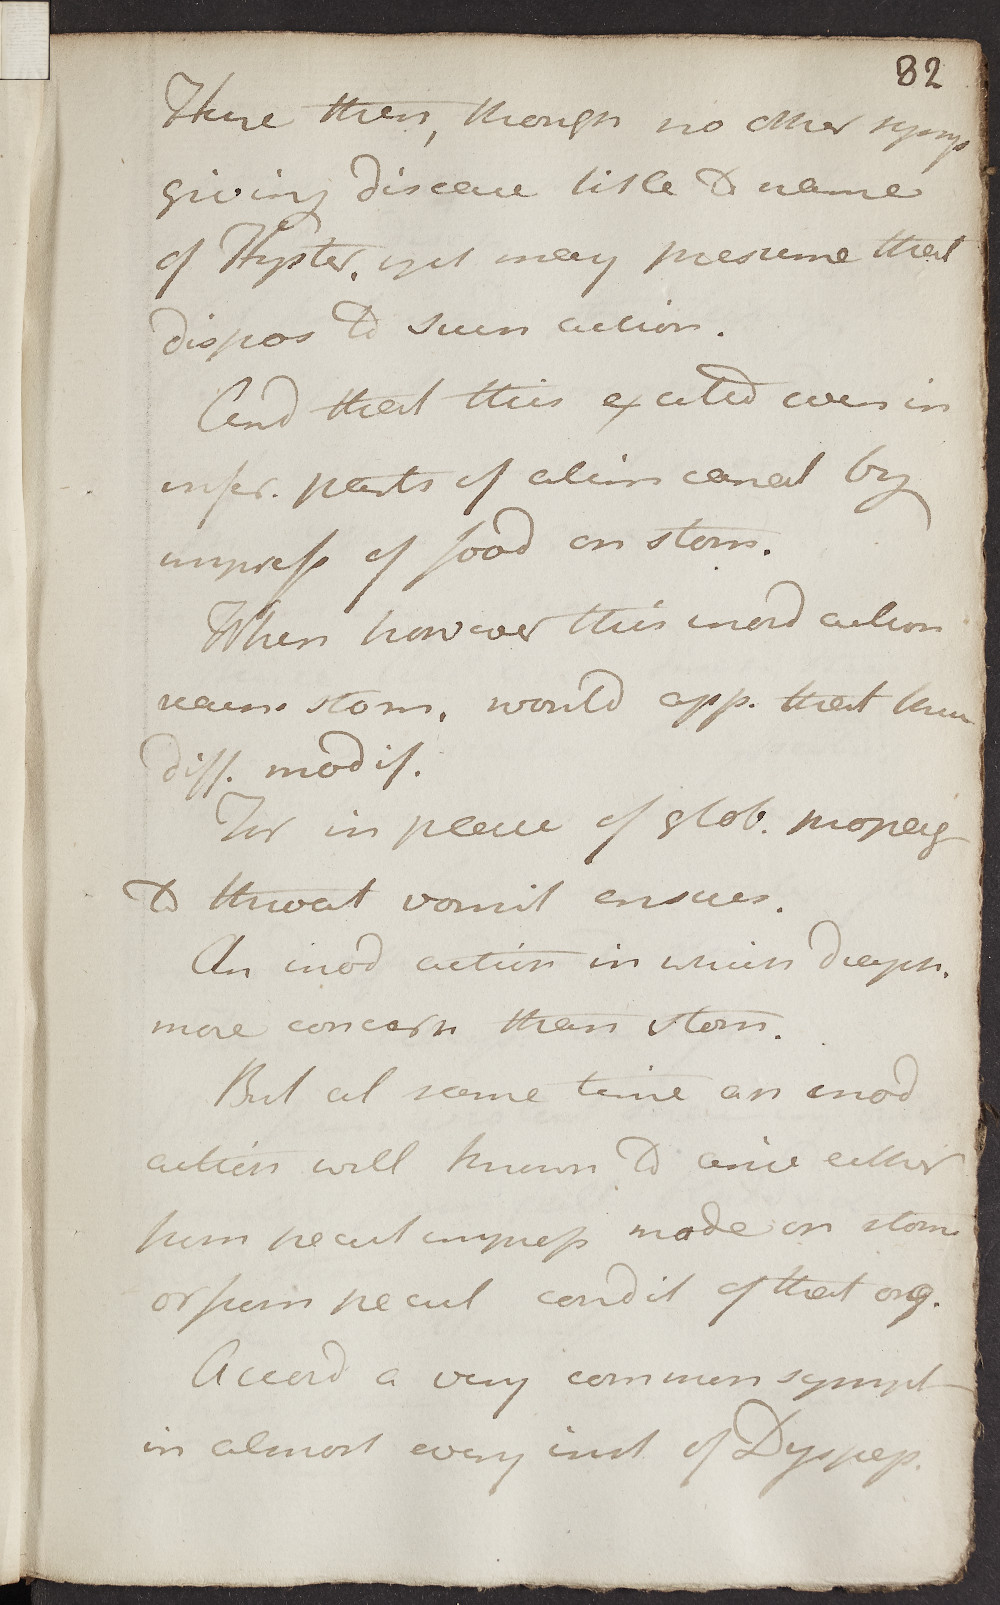 82
Here then, though no other symp
giving disease title to name
of Hyster. yet may presume that
dispos to such action.
And that this excited even in
infer. parts of alim canal by
impress of food on stom.
When however this inord action
reaches stom. would app. that then
diff. modif.
For in place of glob. propag
to throat vomit ensues.
An inod action in which diaph.
more concern than stom.
But at same time an inod
action well known to arise either
from pecul impress made on stom
or from pecul condit of that org.
Accord a very common sympt
in almost every inst of Dyspep.